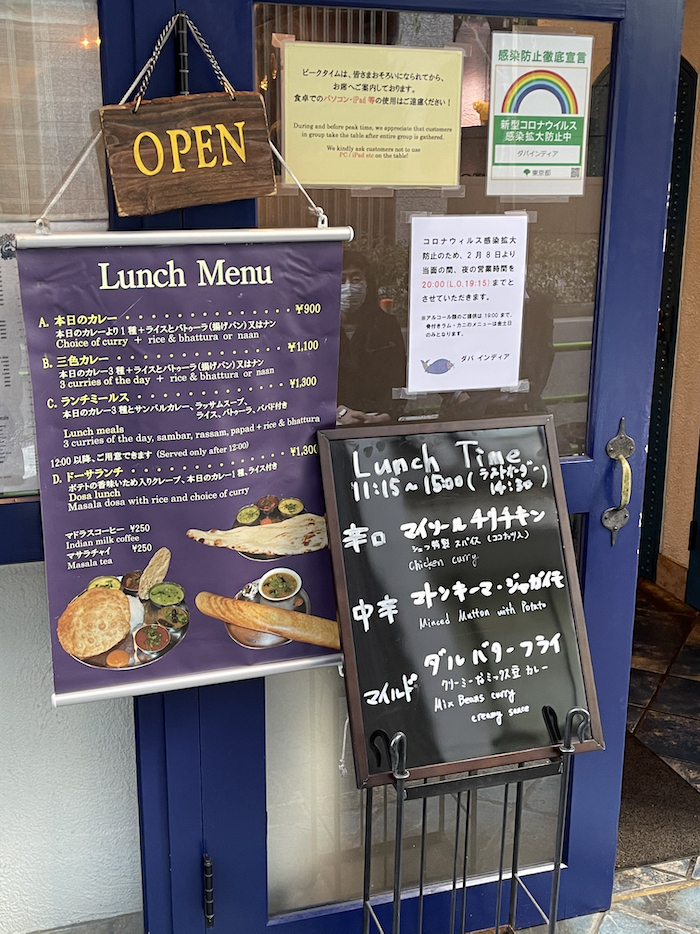 OPEN
ピークタイムは、皆さまおそろいになられてから、
お席へご案内しております。
食卓でのパソコン・iPad 等の使用はご遠慮ください！
During and before peak time, we appreciate that customers
in group take the table after entire group is gathered.
We kindly ask customers not to use
PC / iPad etc on the table!
感染防止徹底宣言
新型コロナウイルス
感染拡大防止中
ダバインディア
東京都
コロナウィルス感染拡大
防止のため、２月８日より
当面の間、夜の営業時間を
20:00 (L.O.19:15) までと
させていただきます。
※アルコール類のご提供は 19:00 まで、
骨付きラム・カニのメニューは金土日
のみとなります。
ダバ インディア
Lunch Menu
A. 本日のカレー ¥900
本日のカレーより1種＋ライスとバトゥーラ（揚げパン）又はナン
Choice of curry + rice & bhattura or naan
B. 三色カレー ¥1,100
本日のカレー3種＋ライスとバトゥーラ（揚げパン）又はナン
3 curries of the day + rice & bhattura or naan
C. ランチミールス ¥1,300
本日のカレー3種とサンバルカレー、ラッサムスープ、
ライス、バトゥーラ、パパド付き
Lunch meals
3 curries of the day, sambar, rassam, papad + rice & bhattura
12:00 以降、ご用意できます (Served only after 12:00)
D. ドーサランチ ¥1,300
ポテトの香味いため入りクレープ、本日のカレー1種、ライス付き
Dosa lunch
Masala dosa with rice and choice of curry
マドラスコーヒー ¥250
Indian milk coffee
マサラチャイ ¥250
Masala tea
Lunch Time
11:15～15:00 (ラストオーダー 14:30)
辛口 マイソールチリチキン
シェフ特製 スパイス (ココナッツ入)
Chicken curry
中辛 マトンキーマ・ジャガイモ
Minced Mutton with Potato
マイルド ダルバターフライ
クリーミーなミックス豆 カレー
Mix Beans curry
creamy sauce